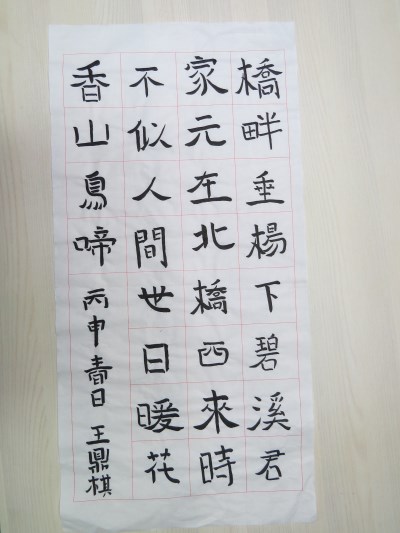 橋畔垂楊下碧溪君
家元在北橋西來時
不似人間世日暖花
香山鳥啼丙申春日王鼎棋